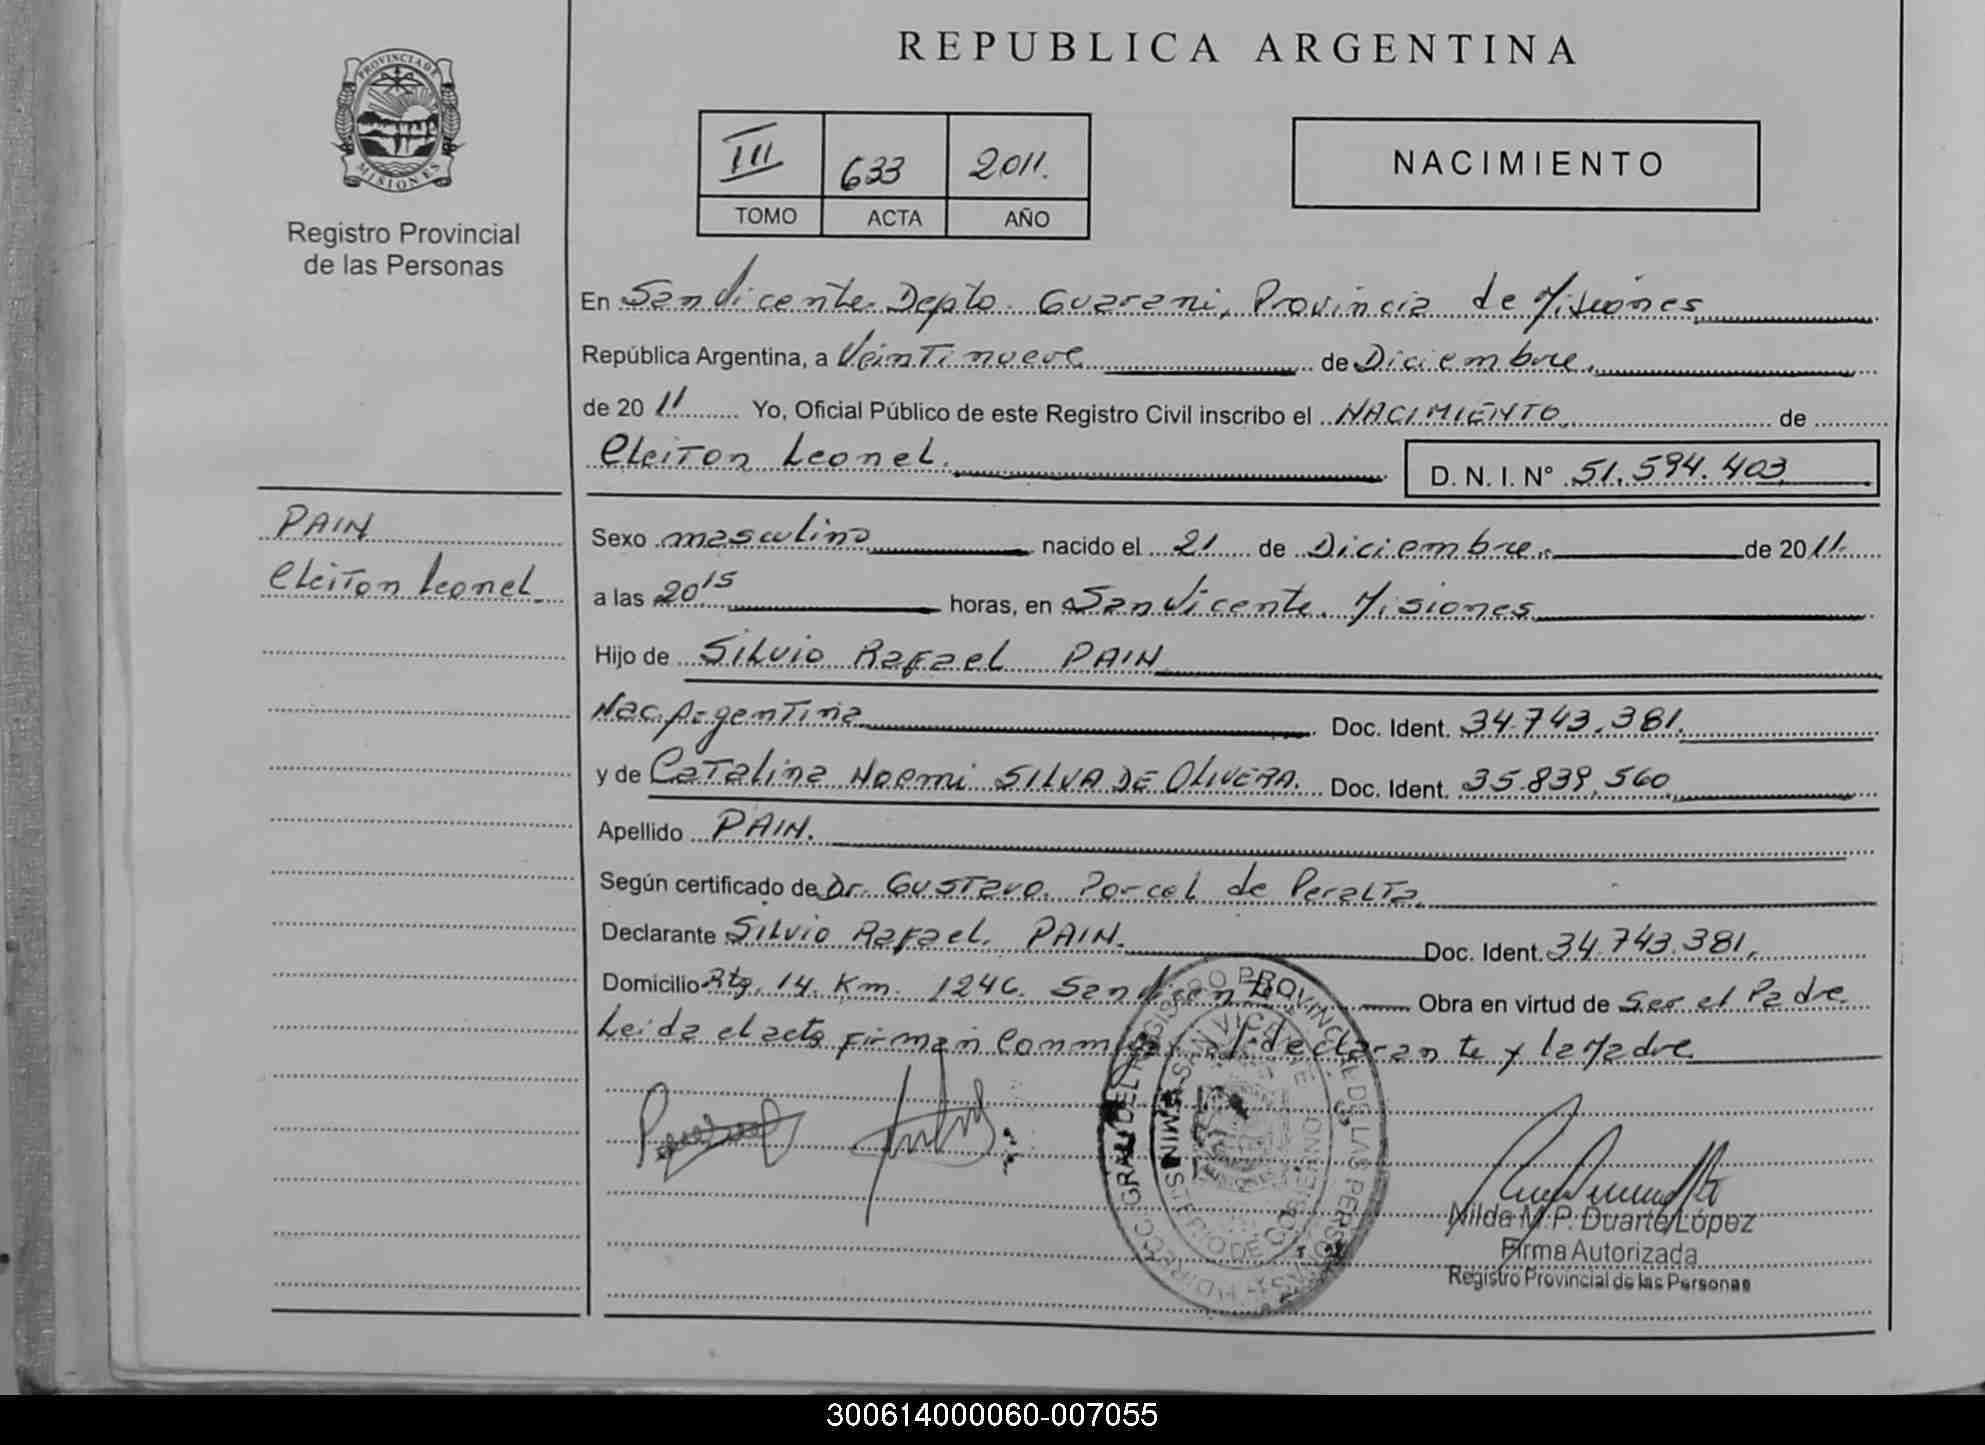 PROVINCIA DE
MISIONES
Registro Provincial
de las Personas
REPUBLICA ARGENTINA
III 633 2011.
TOMO ACTA AÑO
NACIMIENTO
En San Vicente. Depto. Guarani, Provincia de Misiones
República Argentina, a Veintinueve de Diciembre.
de 20 11 Yo, Oficial Público de este Registro Civil inscribo el NACIMIENTO de
Cleiton Leonel.
D. N. I. N° 51.594.403
PAIN
Cleiton Leonel
Sexo masculino nacido el 21 de Diciembre. de 20 11.
a las 20 15 horas, en San Vicente. Misiones
Hijo de Silvio Rafael PAIN
Nac. Argentina Doc. Ident. 34.743.381.
y de Catalina Noemi SILVA DE OLIVERA. Doc. Ident. 35.839.560
Apellido PAIN.
Según certificado de Dr. Gustavo. Porcel de Peralta.
Declarante Silvio Rafael. PAIN. Doc. Ident. 34.743.381.
Domicilio Rta. 14. Km. 1246. San Vicente Obra en virtud de Ser el Padre
Leida el acta firman Conmigo el declarante y la Madre
REGISTRO PROVINCIAL DE LAS PERSONAS
SAN VICENTE
MINISTERIO DE GOBIERNO
MISIONES
Nilda M.P. Duarte López
Firma Autorizada
Registro Provincial de las Personas
300614000060-007055